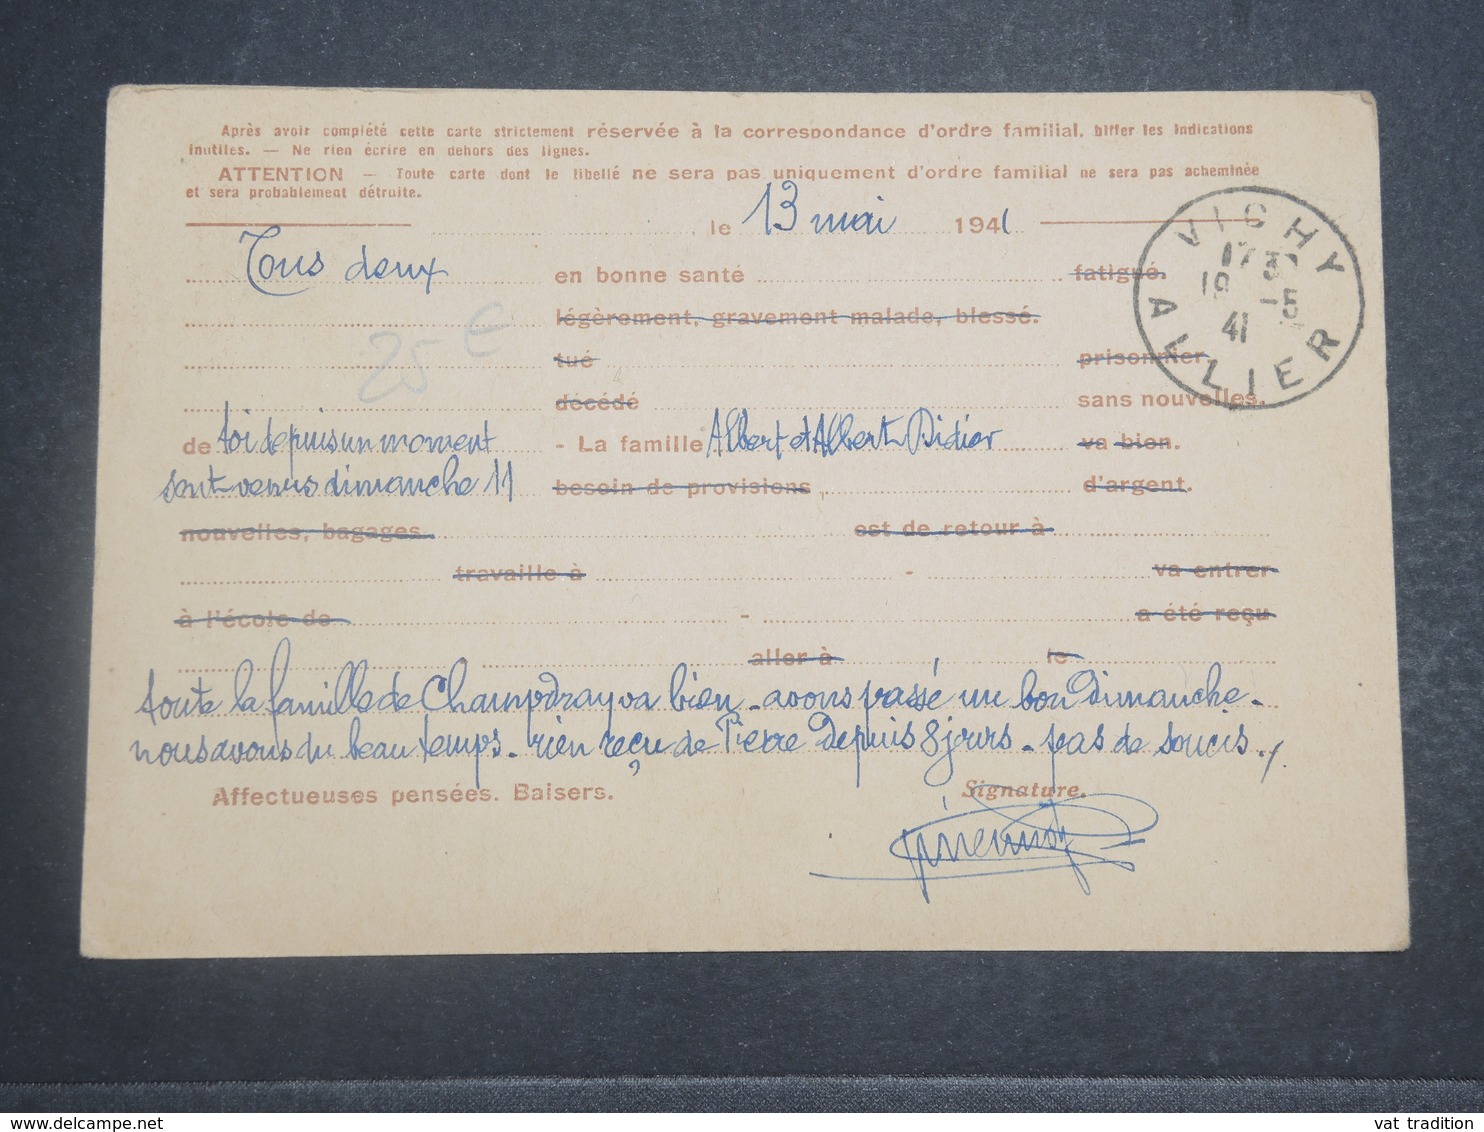 Après avoir complété cette carte strictement réservée à la correspondance d'ordre familial, biffer les indications
inutiles. — Ne rien écrire en dehors des lignes.
ATTENTION — Toute carte dont le libellé ne sera pas uniquement d'ordre familial ne sera pas acheminée
et sera probablement détruite.
le 13 mai 1941
VICHY
17 30
19 -5
41
ALLIER
Tous deux en bonne santé fatigué.
légèrement, gravement malade, blessé.
25 €
tué prisonnier.
décédé sans nouvelles.
de toi depuis un moment - La famille Albert et Albert Didier va bien.
sont venus dimanche 11 besoin de provisions, d'argent.
nouvelles, bagages est de retour à
travaille à - va entrer
à l'école de - a été reçu
aller à le
toute la famille de Champdray va bien - avons passé un bon Dimanche -
nous avons du beau temps - rien reçu de Pierre depuis 8 jours - pas de soucis.
Affectueuses pensées. Baisers. Signature.
vat tradition